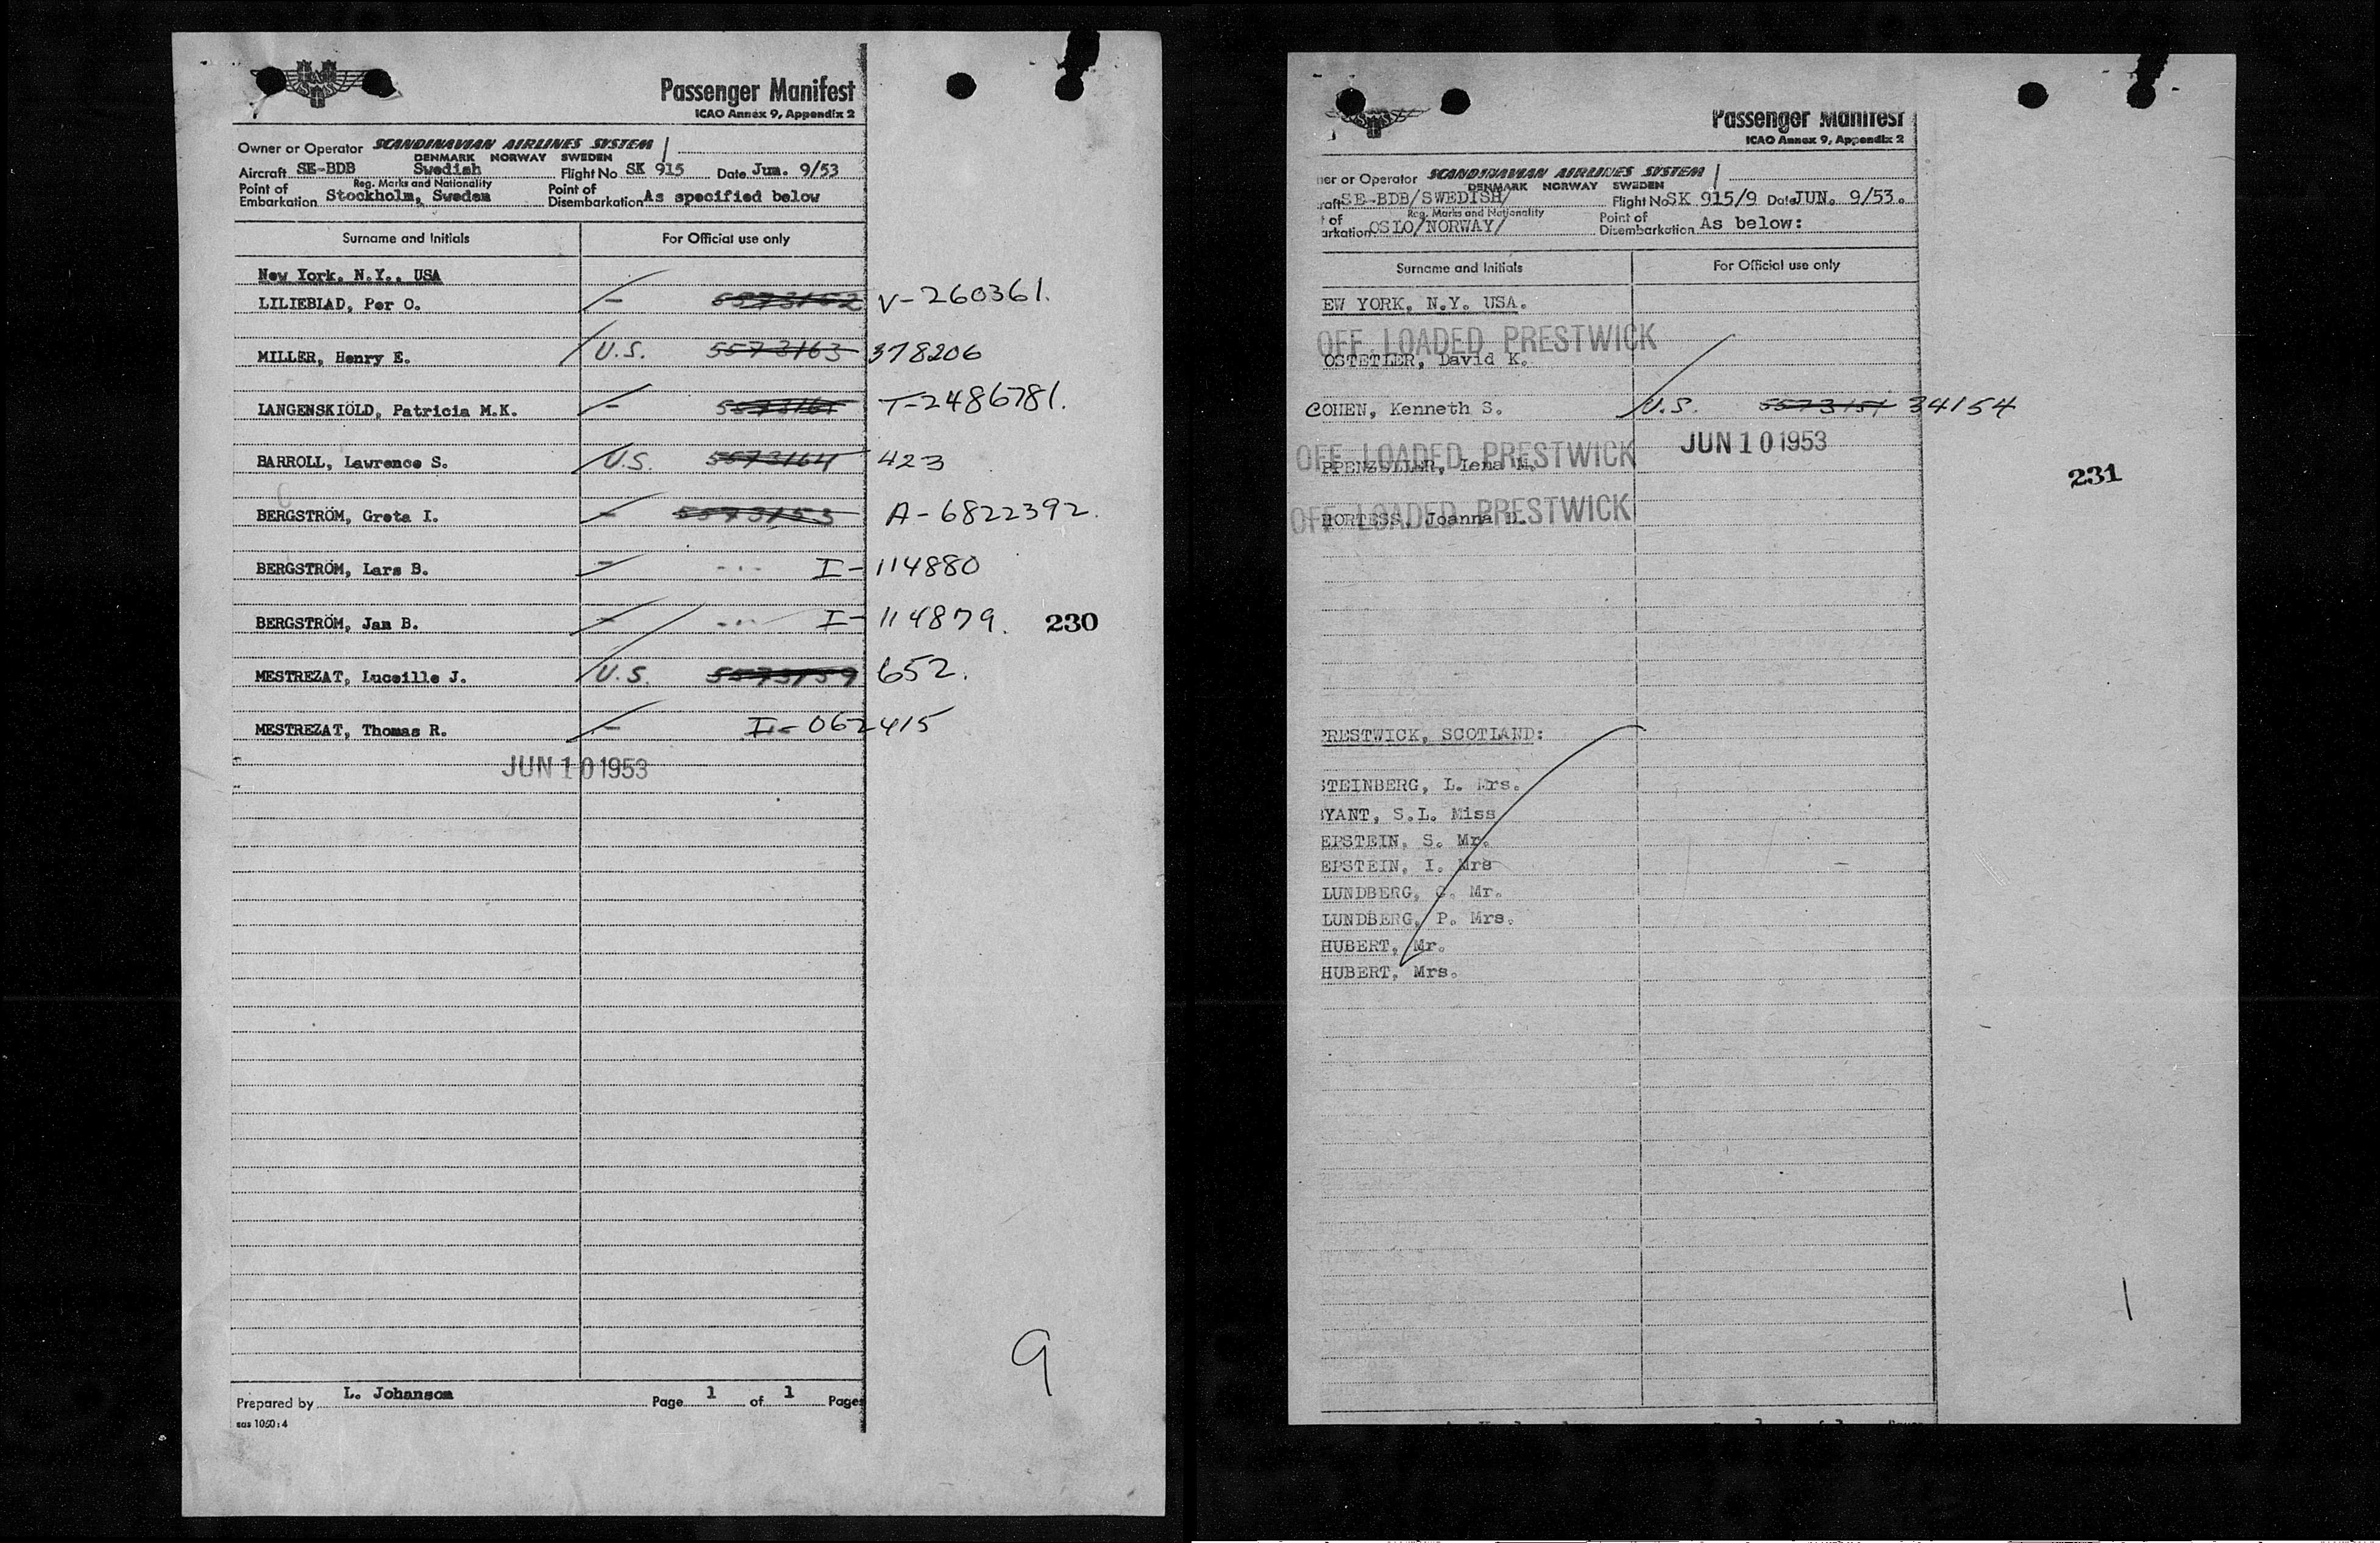 Passenger Manifest
ICAO Annex 9, Appendix 2
Owner or Operator SCANDINAVIAN AIRLINES SYSTEM
DENMARK NORWAY SWEDEN
Aircraft SE-BDB Swedish Flight No SK 915 Date Jun. 9/53
Reg. Marks and Nationality
Point of Embarkation Stockholm, Sweden Point of Disembarkation As specified below
Surname and Initials For Official use only
New York. N.Y., USA
LILIEBLAD, Per O. — 5573162 V-260361.
MILLER, Henry E. U.S. 5573163 378206
LANGENSKIÖLD, Patricia M.K. — T-2486781.
BARROLL, Lawrence S. U.S. 5573164 423
BERGSTRÖM, Greta I. — 5573153 A-6822392.
BERGSTRÖM, Lars B. — I-114880
BERGSTRÖM, Jan B. — I-114879. 230
MESTREZAT, Luceille J. U.S. 5573159 652.
MESTREZAT, Thomas R. — I-062415
JUN 10 1953
9
Prepared by L. Johanson Page 1 of 1 Pages
sas 1050:4
Passenger Manifest
ICAO Annex 9, Appendix 2
ner or Operator SCANDINAVIAN AIRLINES SYSTEM
DENMARK NORWAY SWEDEN
raft SE-BDB/SWEDISH/ Flight No SK 915/9 Date JUN. 9/53.
Reg. Marks and Nationality
t of arkation OSLO/NORWAY/ Point of Disembarkation As below:
Surname and Initials For Official use only
EW YORK, N.Y. USA.
OFF LOADED PRESTWICK
OSTETLER, David K.
COHEN, Kenneth S. U.S. 5573151 34154
JUN 10 1953
OFF LOADED PRESTWICK
PPENZELLER, Lena M.
231
OFF LOADED PRESTWICK
HORTESS, Joanna D.
PRESTWICK, SCOTLAND:
STEINBERG, L. Mrs.
YANT, S.L. Miss
EPSTEIN, S. Mr.
EPSTEIN, I. Mrs
LUNDBERG, G. Mr.
LUNDBERG, P. Mrs.
HUBERT, Mr.
HUBERT, Mrs.
1